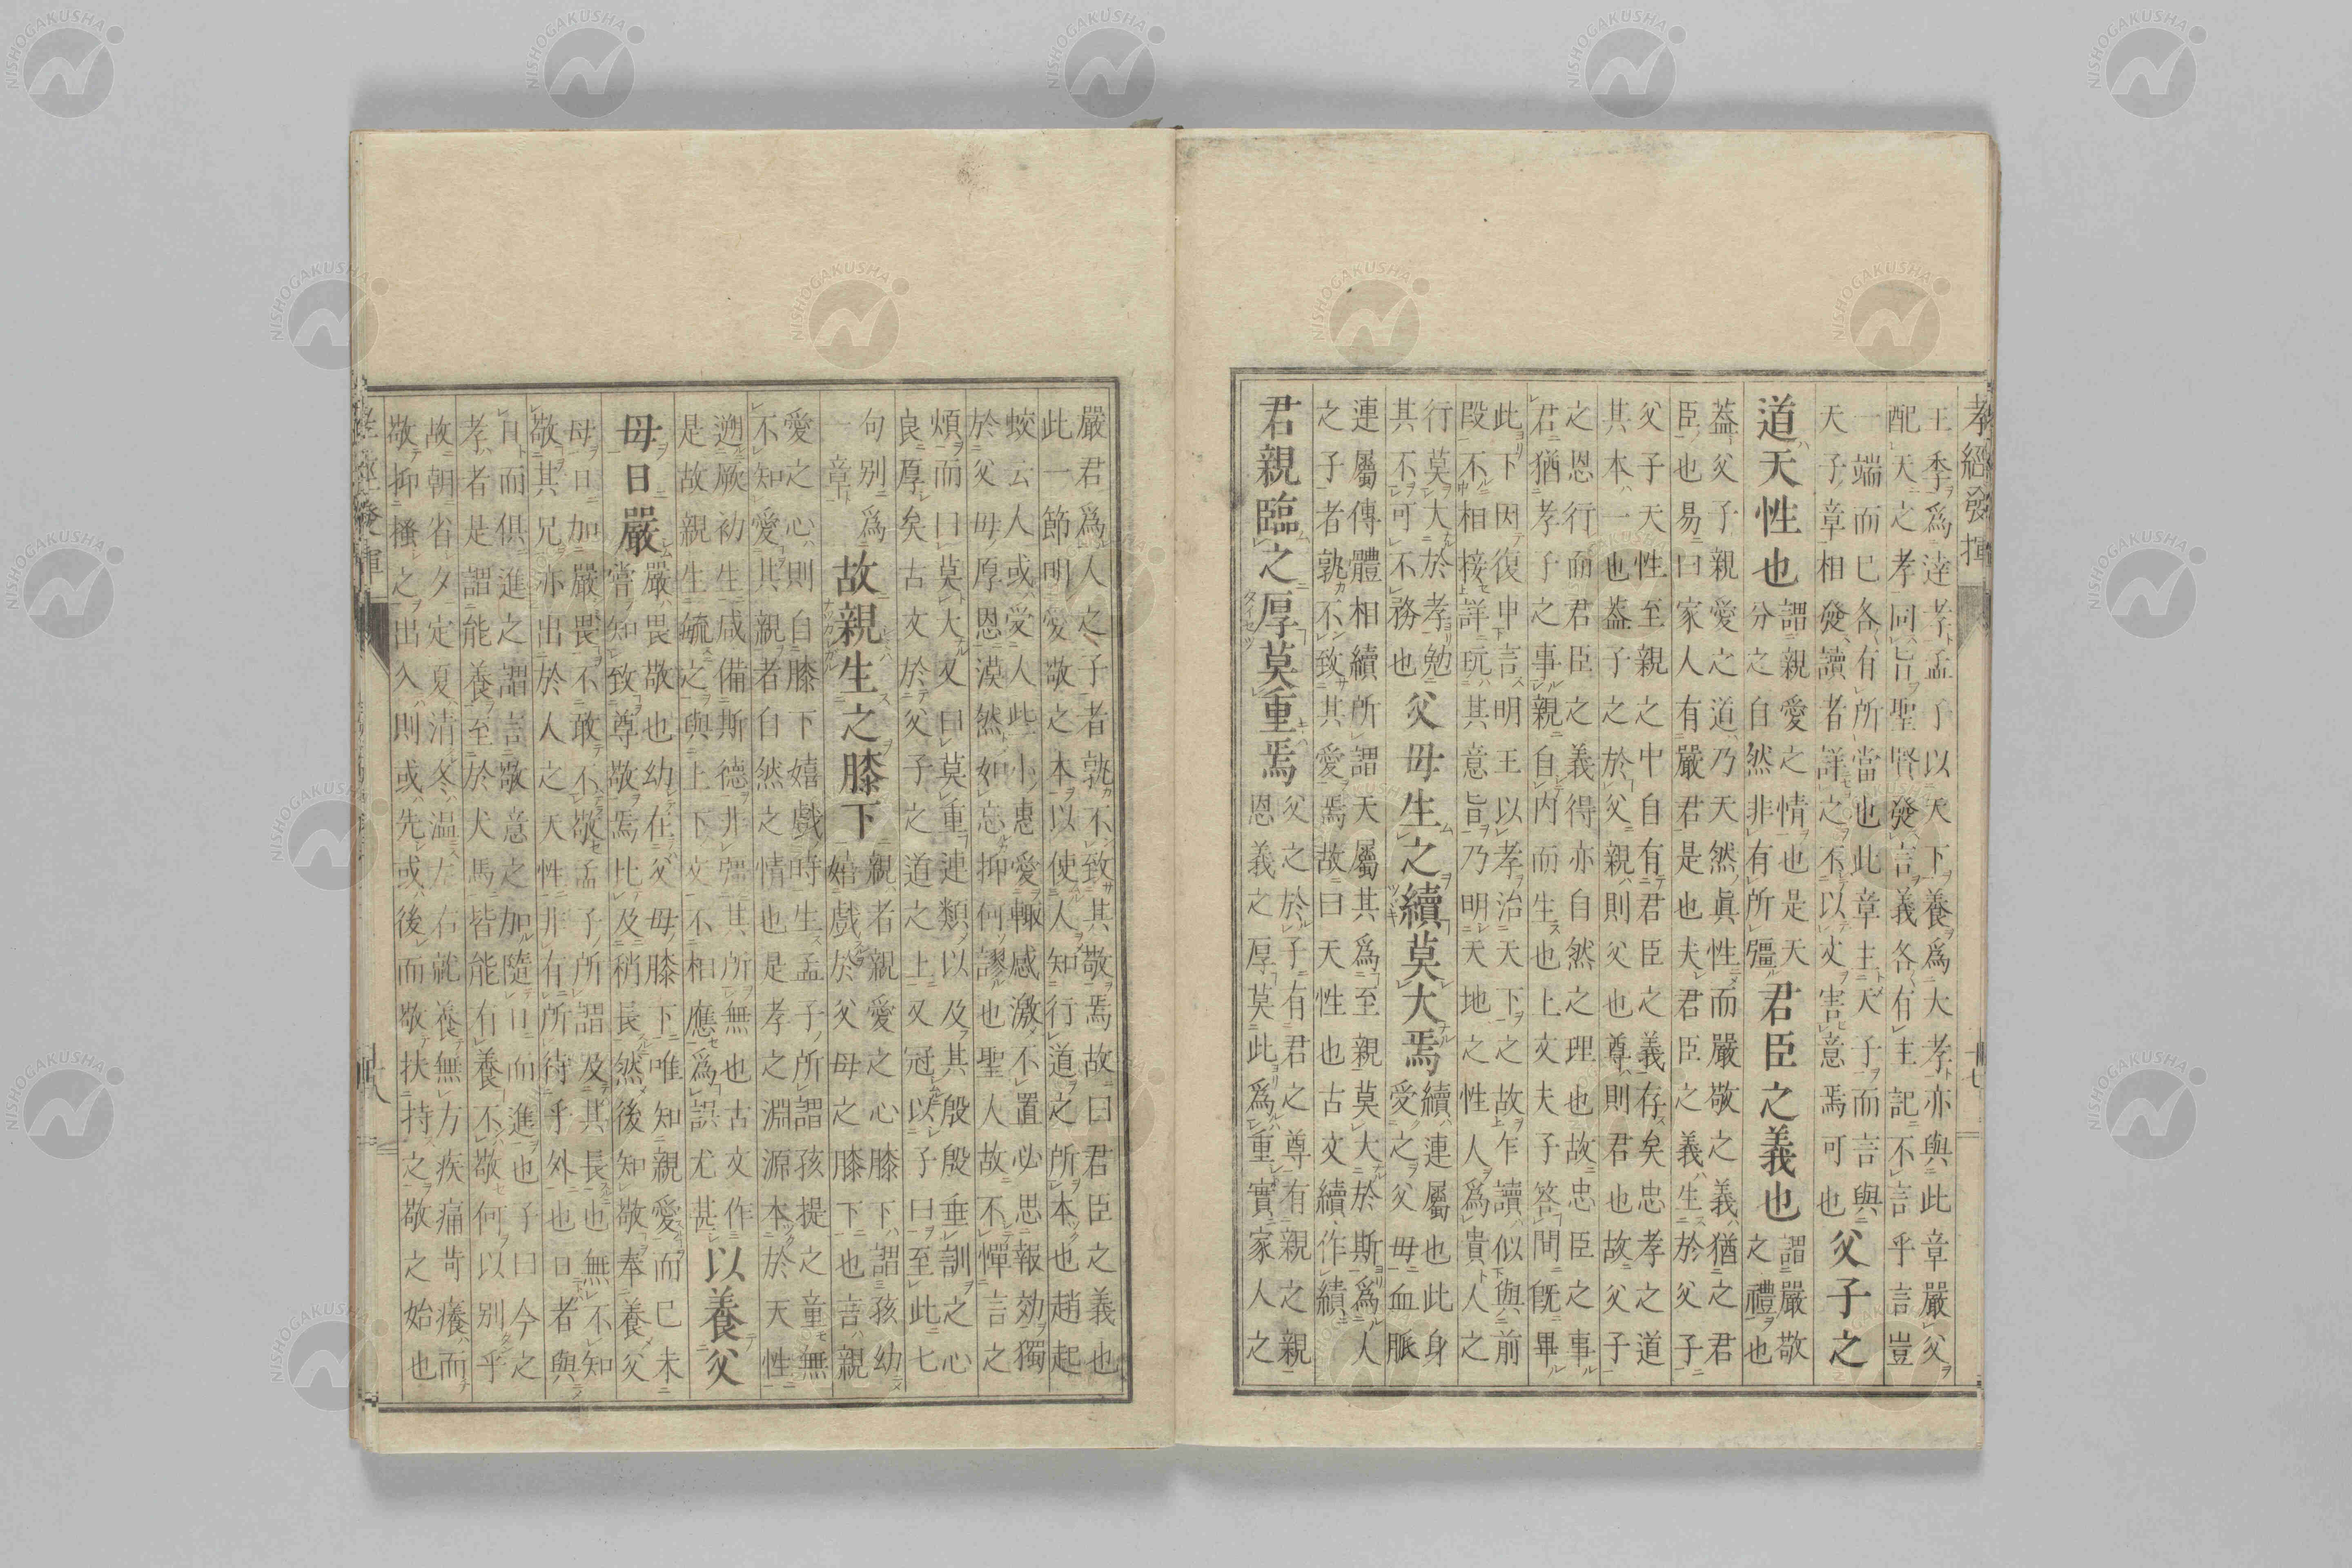 孝經發揮
十七
王季爲達孝孟子以天下養爲大孝亦與此章嚴父
配天之孝同旨聖賢發言義各有主記不言乎言豈
一端而已各有所當也此章主天子而言與
天子章相發讀者詳之不以文害意焉可也
父子之
道天性也
謂親愛之情也是天
分之自然非有所彊
君臣之義也
謂嚴敬
之禮也
蓋父子親愛之道乃天然眞性而嚴敬之義猶之君
臣也易曰家人有嚴君是也夫君臣之義生於父子
父子天性至親之中自有君臣之義存矣忠孝之道
其本一也蓋子之於父親則父也尊則君也故父子
之恩行而君臣之義得亦自然之理也故忠臣之事
君猶孝子之事親自内而生也上文夫子答問既畢
此下因復申言明王以孝治天下之故乍讀似與前
段不相接詳玩其意旨乃明天地之性人爲貴人之
行莫大於孝勉
其不可不務也
父母生之續莫大焉
續連屬也此身
愛之父母血脈
連屬傳體相續所謂天屬其爲至親莫大於斯爲人
之子者孰不致其愛焉故曰天性也古文續作績
君親臨之厚莫重焉
父之於子有君之尊有親之親
恩義之厚莫此爲重實家人之
嚴君爲人之子者孰不致其敬焉故曰君臣之義也
此一節明愛敬之本以使人知行道之所本也趙起
蛟云人或受人些小惠愛輒感激不置必思報効獨
於父母厚恩漠然如忘抑何謬也聖人故不憚言之
煩而曰莫大又曰莫重連類以及其殷殷垂訓之心
良厚矣古文於父子之道之上又冠以子曰至此七
句別爲
一章
故親生之膝下
親者親愛之心膝下謂孩幼
嬉戲於父母之膝下也言親
愛之心則自膝下嬉戲時生孟子所謂孩提之童無
不知愛其親者自然之情也是孝之淵源本於天性
遡厥初生咸備斯德非彊其所無也古文作
是故親生毓之與上下文不相應爲誤尤甚
以養父
母日嚴
嚴畏敬也幼在父母膝下唯知親愛而已未
嘗知致尊敬焉比及稍長然後知敬奉養父
母日加嚴畏不敢不敬孟子所謂及其長也無不知
敬其兄亦出於人之天性非有所待乎外也日者與
日而俱進之謂言敬意之加隨日而進也子曰今之
孝者是謂能養至於犬馬皆能有養不敬何以別乎
故朝省夕定夏清冬温左右就養無方疾痛苛癢而
敬抑搔之出入則或先或後而敬扶持之敬之始也